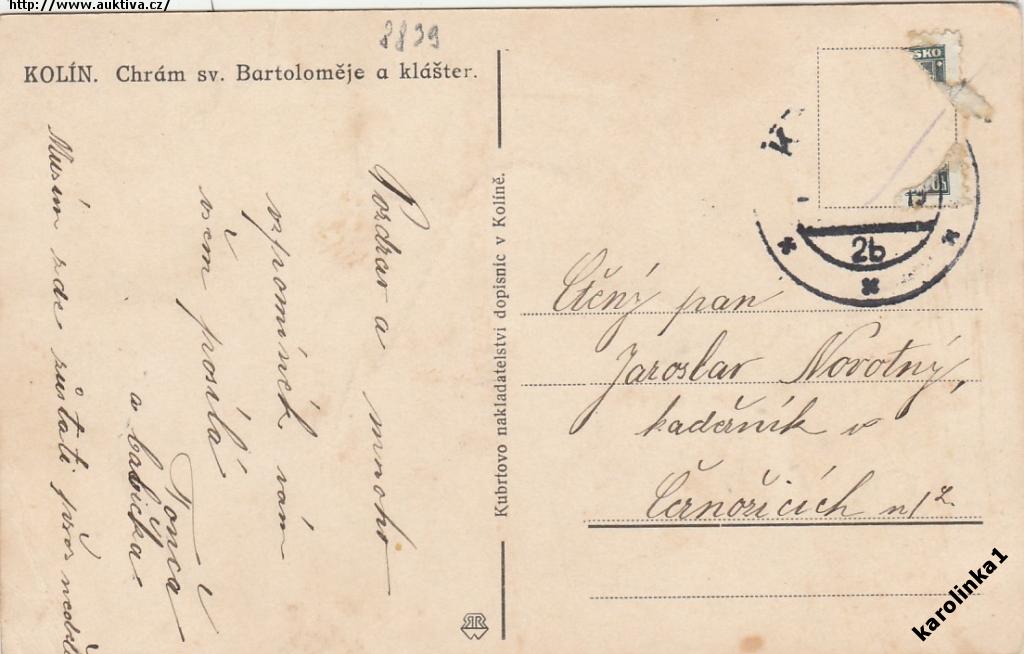 http://www.auktiva.cz/
8839
KOLÍN. Chrám sv. Bartoloměje a klášter.
Pozdrav a mnoho
vzpomínek vám
všem posílá
Tonča
a babička.
Musím zde zůstati přes neděli
Kubrtovo nakladatelství dopisnic v Kolíně.
SKO
K
2b
Ctěný pan
Jaroslav Novotný,
kadeřník v
Černožicích n/L
karolinka1